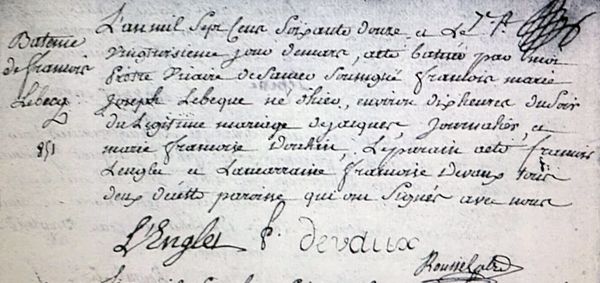 Bateme
de francois
Lebecq
851
L'an mil Sept Cens Soixante douze et Le
vingtroisieme jour de mars, a ete batisé par moi
Pretre vicaire soussigné francois marie
Joseph Lebeque né d'hier, environ dix heures du Soir
du Legitime mariage de jacques, journalier, et
marie francoise Le parain a eté francois
Lenglet et La marraine francoise devaux tous
deux de cette paroisse qui ont Signés avec nous
L'Englet f. devaux
Roussel